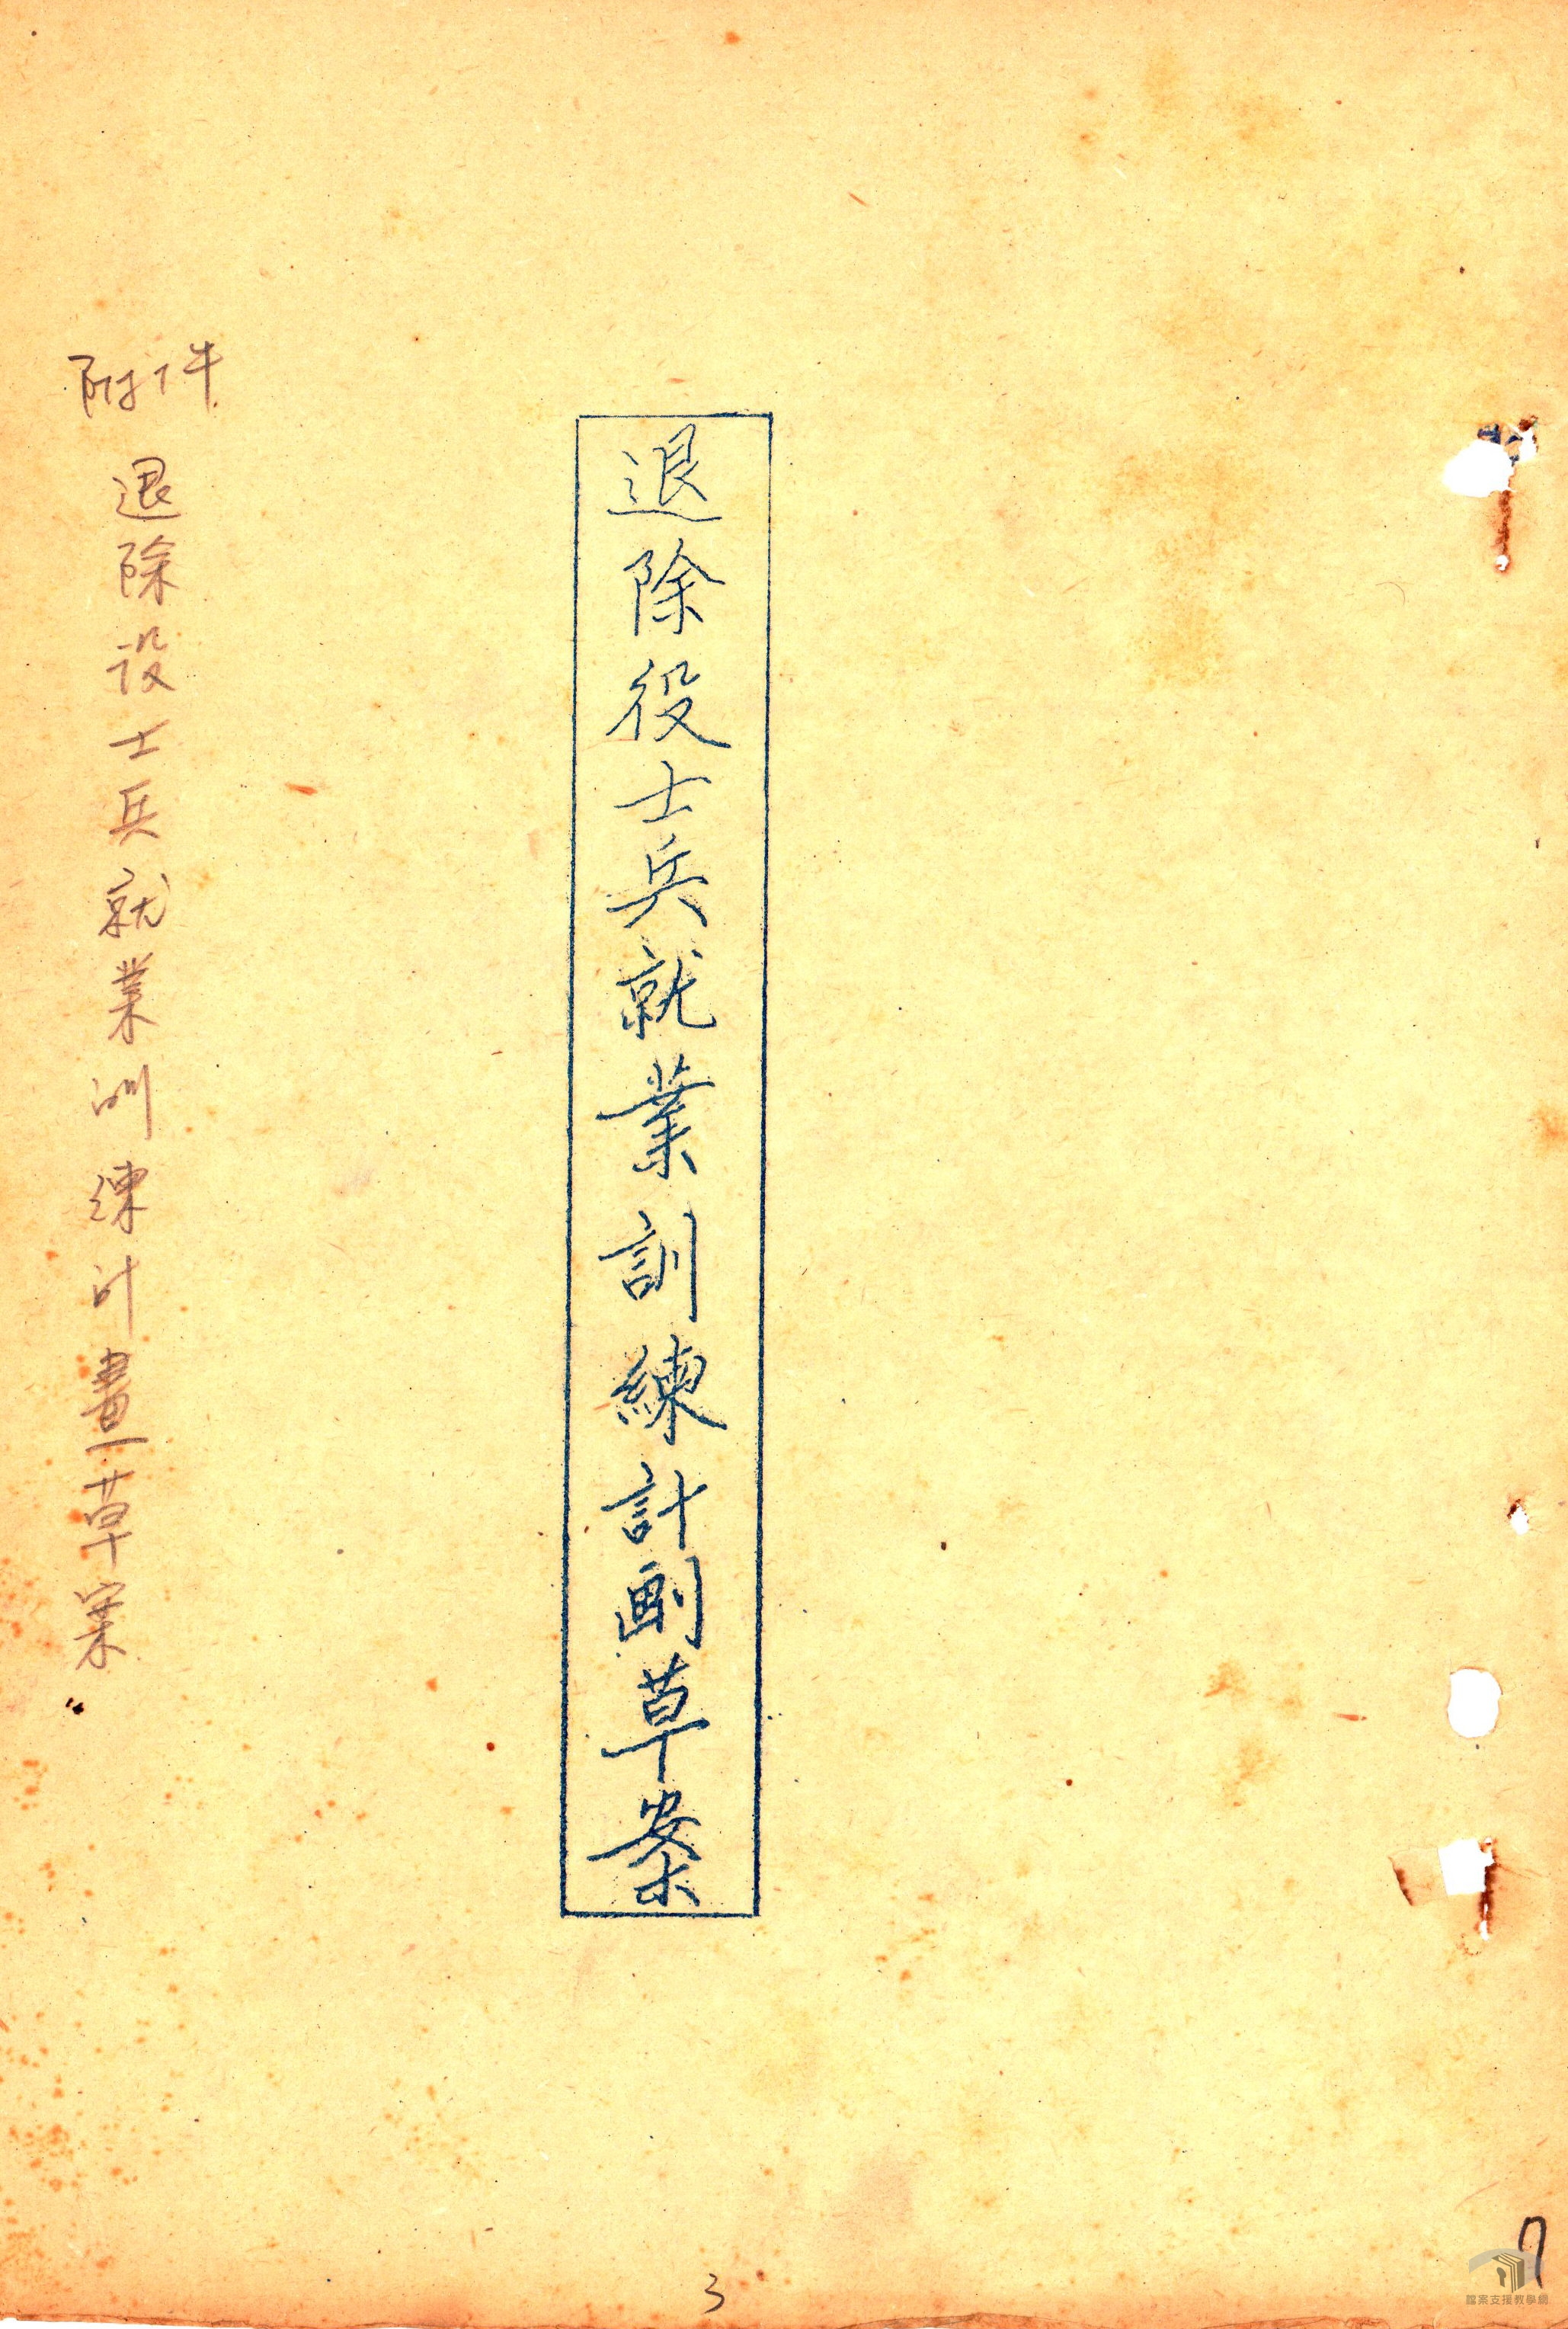 退除役士兵就業訓練計劃草案
附件
退除役士兵就業訓練計畫草案
3
7
檔案支援教學網